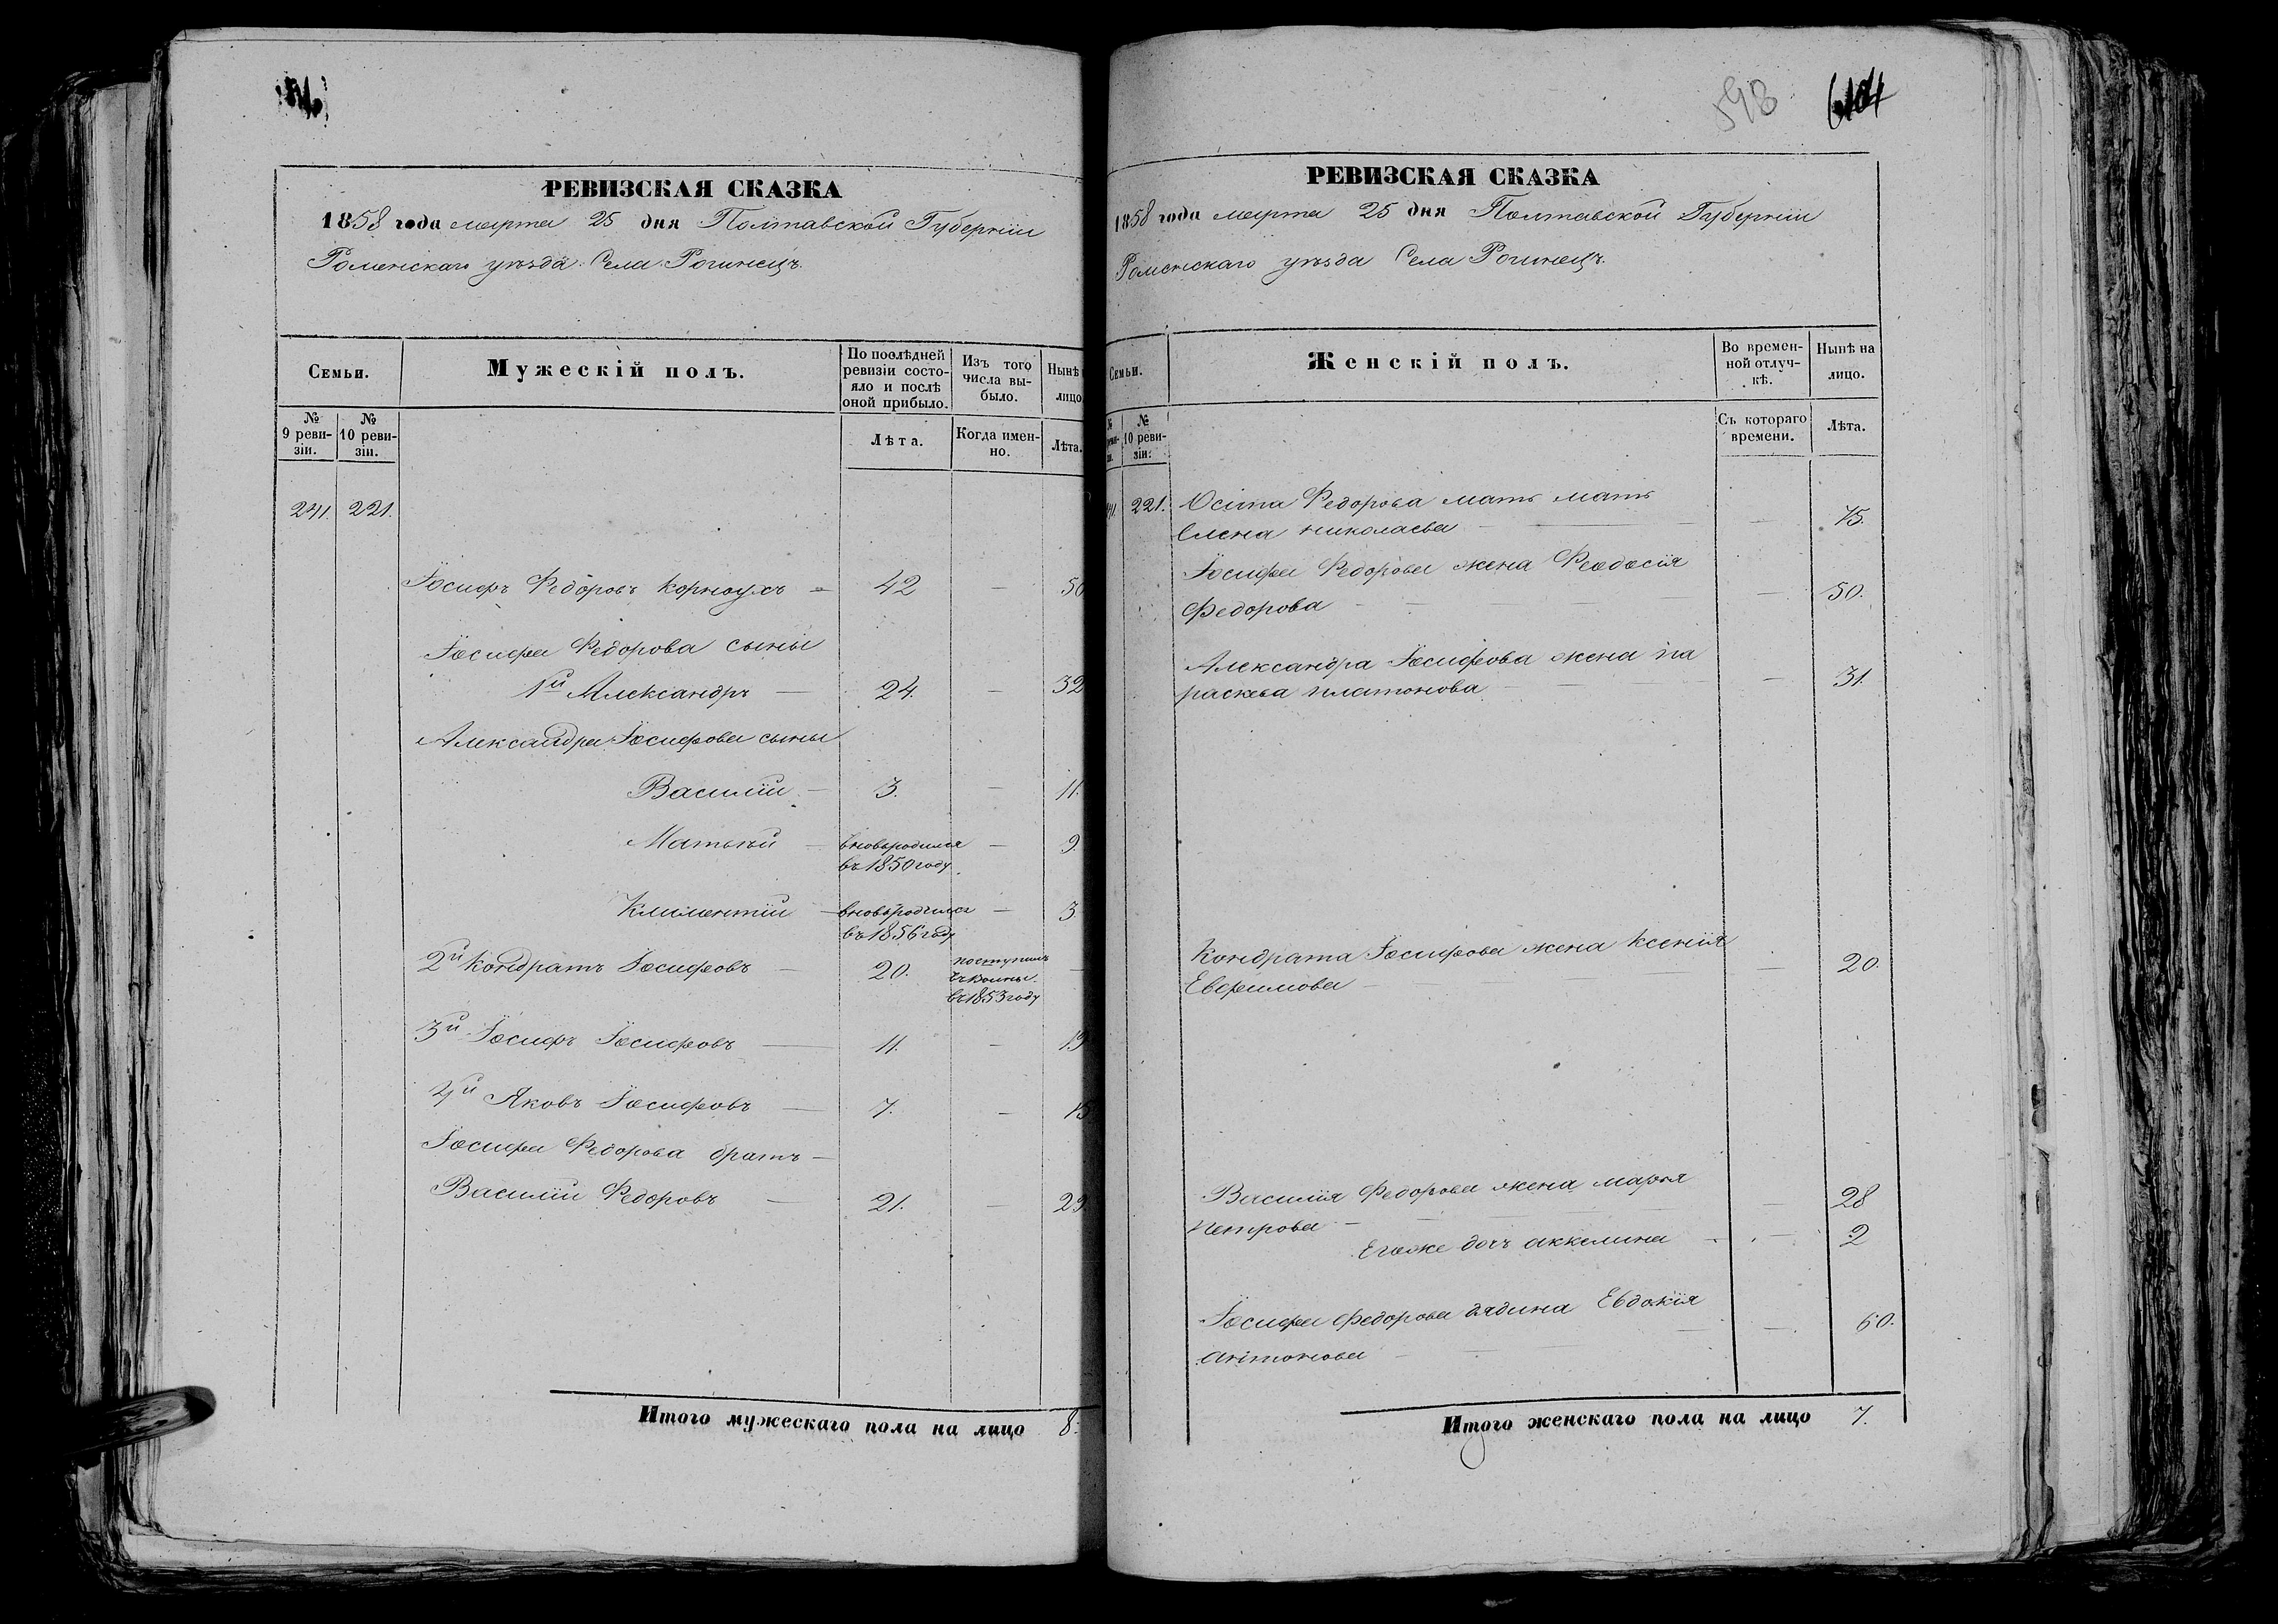 РЕВИЗСКАЯ СКАЗКА
1858 года марта 25 дня Полтавской Губерніи
Роменскаго уѣзда Села Рогинецъ.
Семьи.
Мужескій полъ.
По послѣдней ревизіи состояло и послѣ оной прибыло.
Изъ того числа выбыло.
Нынѣ
лицо
№ 9 ревизіи.
№ 10 ревизіи.
Лѣта.
Когда именно.
Лѣта.
241. 221.
Іосифъ Федоровъ Корноухъ — 42 — 50
Іосифа Федорова сыны
1й Александръ — 24. — 32
Александра Іосифова сыны
Василій — 3. — 11.
Матвѣй — вновьродился — 9.
въ 1850 году.
Климентій — вновьродился — 3
въ 1856 году
2й Кондратъ Іосифовъ — 20. поступилъ —
въ 1853 году
3й Іосифъ Іосифовъ — 11. — 19
4й Яковъ Іосифовъ — 7. — 15
Іосифа Федорова братъ —
Василій Федоровъ — 21. — 29
Итого мужескаго пола на лицо 8.
593
РЕВИЗСКАЯ СКАЗКА
1858 года марта 25 дня Полтавской Губерніи
Роменскаго уѣзда Села Рогинецъ.
Семьи.
Женскій полъ.
Во временной отлучкѣ.
Нынѣ на лицо.
№ 10 ревизіи.
Съ котораго времени.
Лѣта.
221. Осипа Федорова мать мать
Елена николаева — — 75.
Іосифа Федорова жена Феодосія
Федорова — — 50.
Александра Іосифова жена па
раскева платонова — — 31.
Кондрата Іосифова жена Ксенія
Евфимова — — 20.
Василія Федорова жена марья
Петрова — — 28
Егоже дочь аккелина — — 2
Іосифа Федорова дядина Евдокія
антонова — — 60.
Итого женскаго пола на лицо 7.